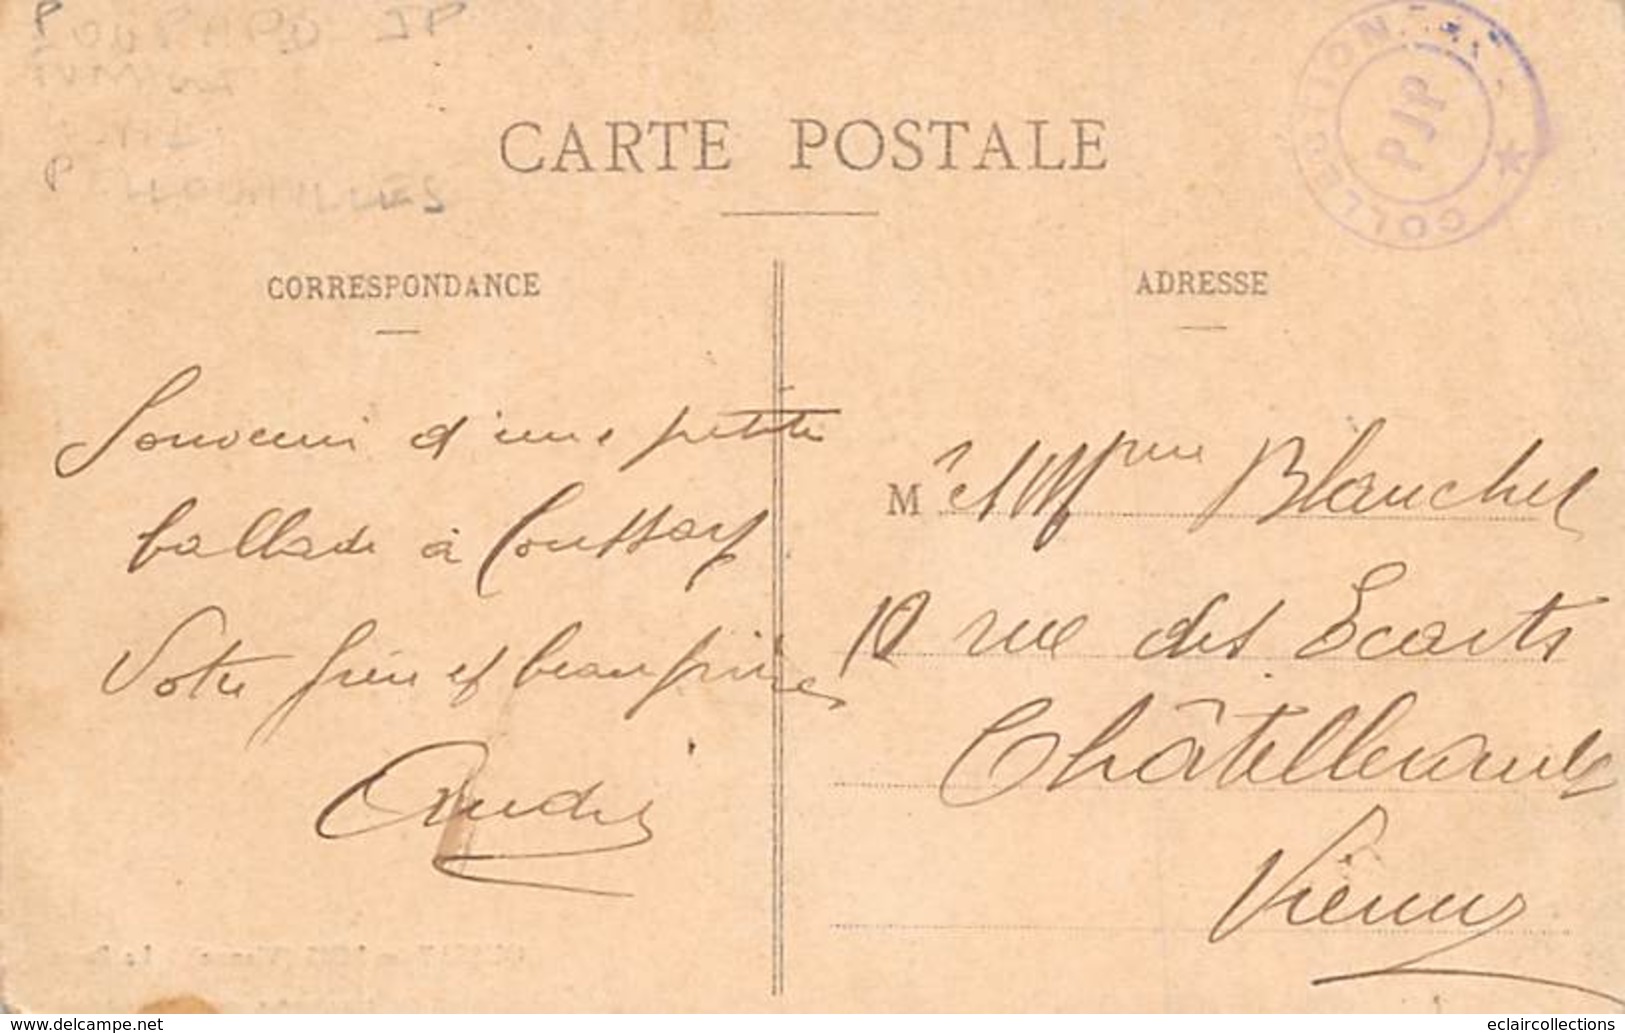 CARTE POSTALE
COLLECTION
PJP
CORRESPONDANCE
Souvenir d'une petite
ballade à Coussay
Votre frère et beau frère
André
ADRESSE
M et Mme Blanchet
10 rue des Ecarts
Châtellerault
Vienne
www.delcampe.net
eclaircollections